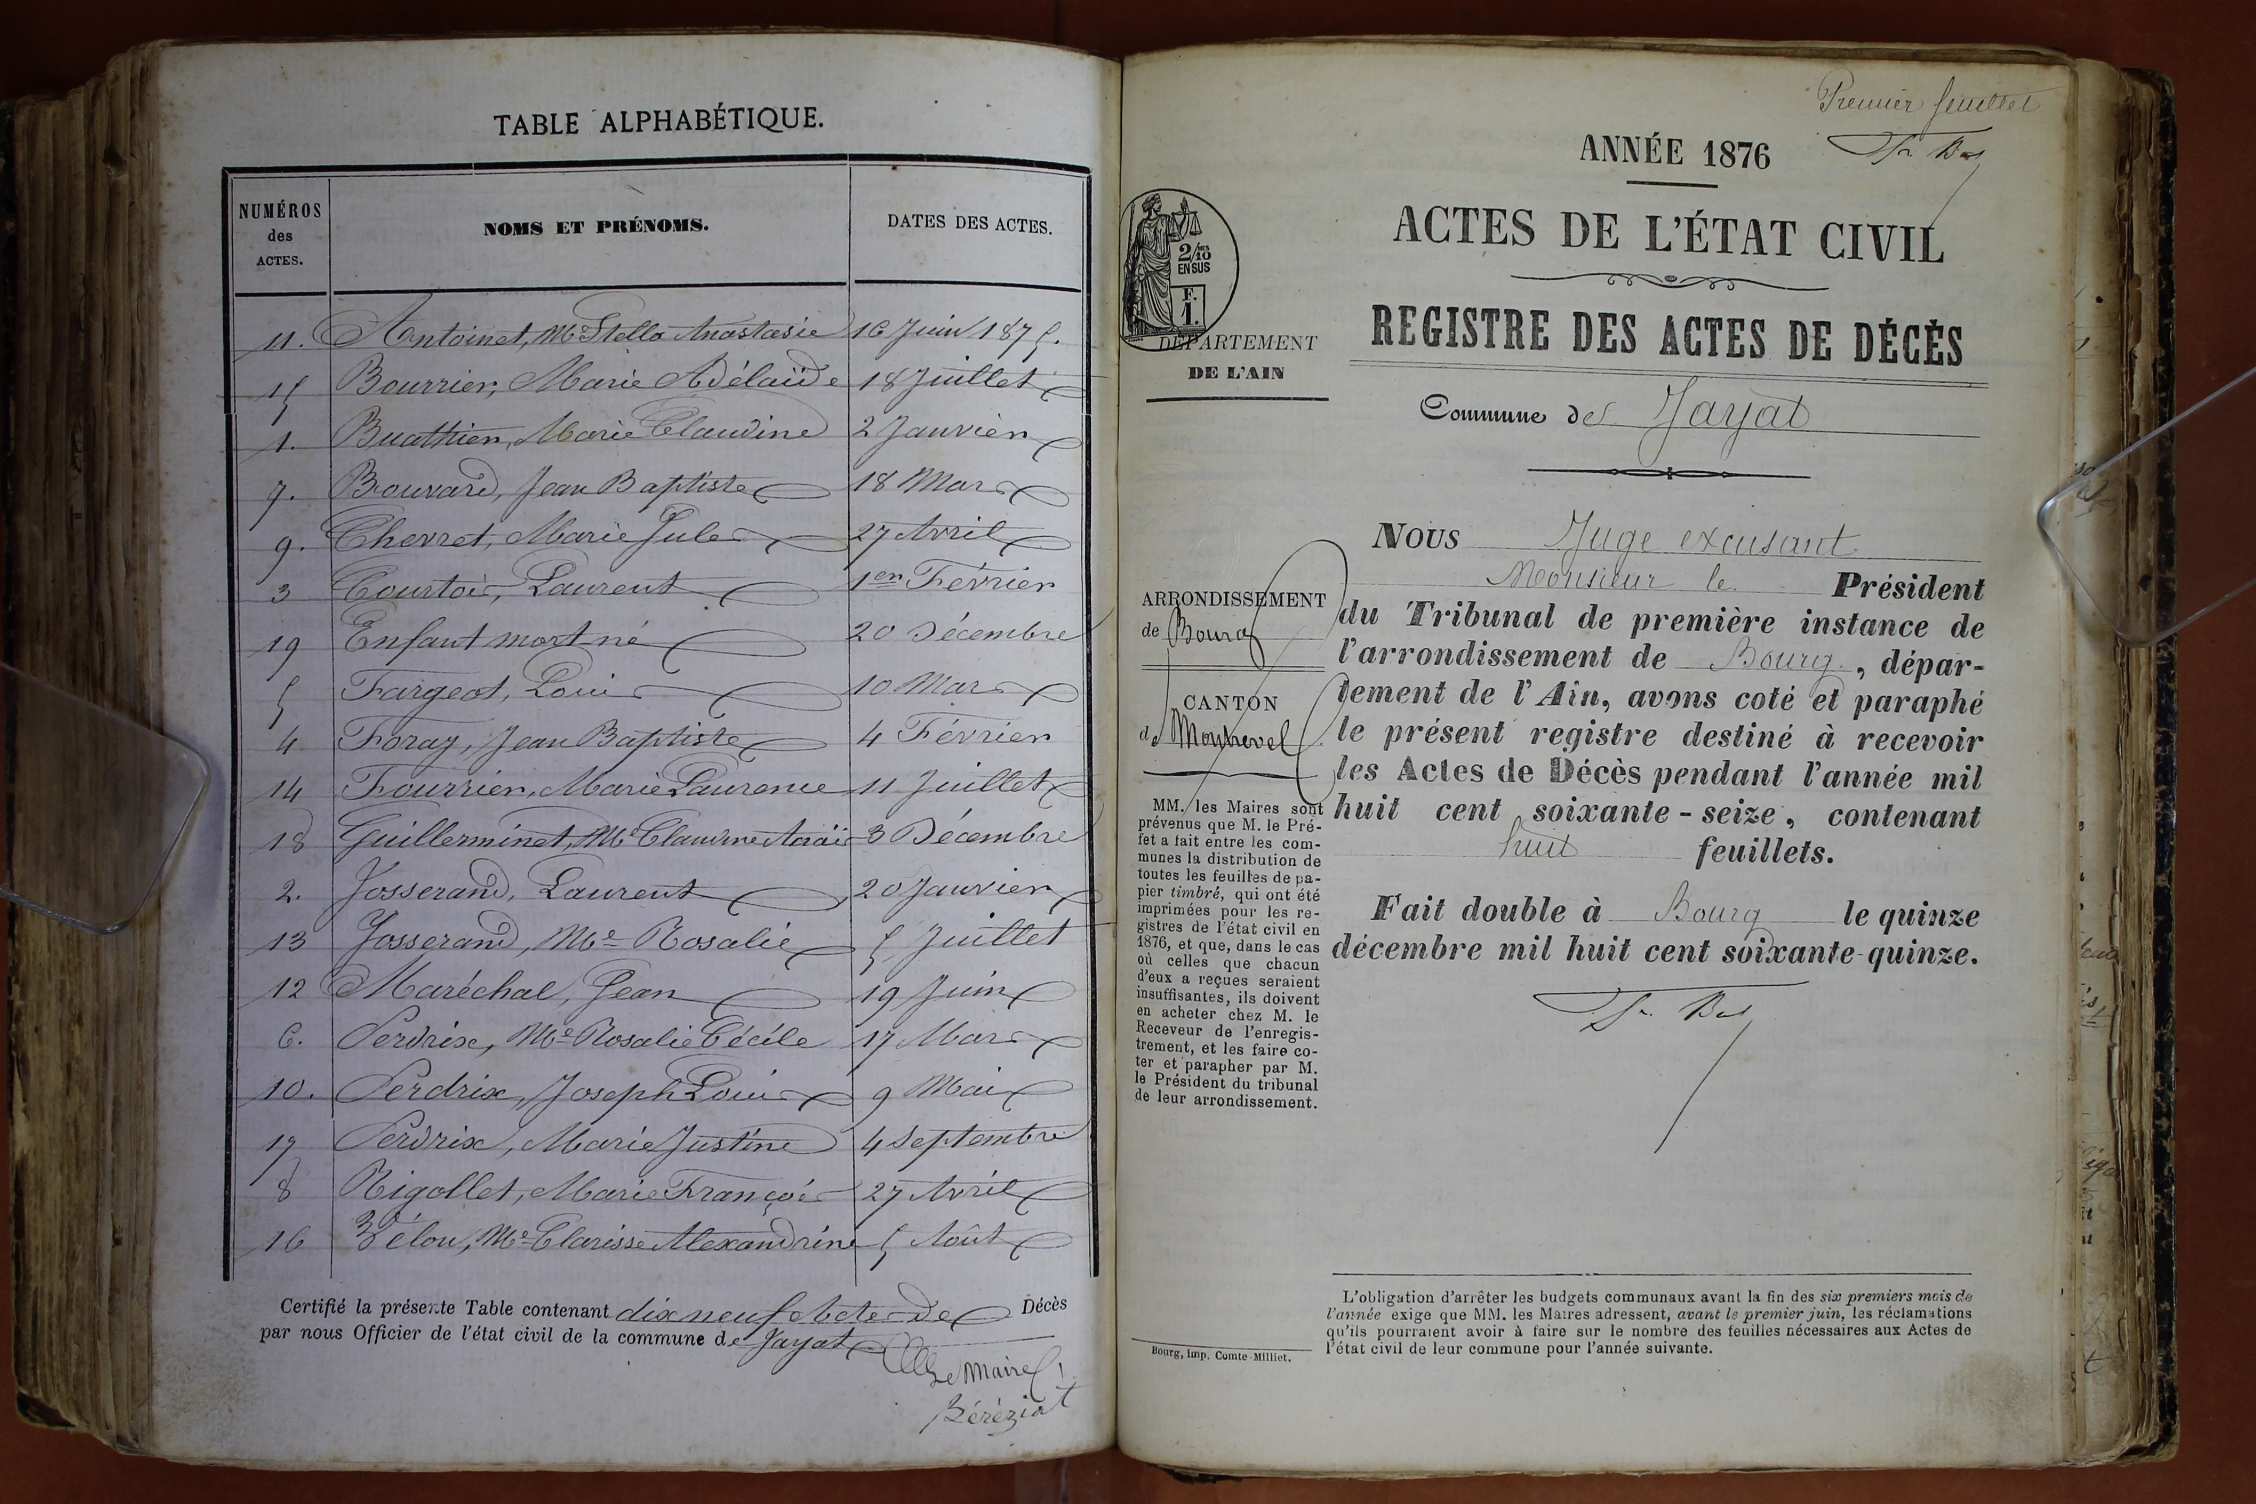 TABLE ALPHABÉTIQUE.
NUMÉROS des ACTES. NOMS ET PRÉNOMS. DATES DES ACTES.
11. Antoinet, Mie Stella Anastasie 16 Juin 1875.
15 Bourrier, Marie Adélaïde 18 Juillet
1. Buathier, Marie Claudine 2 Janvier
7. Bouvard, Jean Baptiste 18 Mars
9. Chevret, Marie Jules 27 Avril
3 Courtois, Laurent 1er Février
19 Enfant mort né 20 Décembre
5 Fargeot, Louis 10 Mars
4 Foray, Jean Baptiste 4 Février
14 Fourrier, Marie Laurence 11 Juillet
18 Guillerminet, Mie Claudine 3 Décembre
2. Josserand, Laurent 20 Janvier
13 Josserand, Mie Rosalie 5 Juillet
12 Maréchal, Jean 19 Juin
6. Perdrix, Mie Rosalie Cécile 17 Mars
10. Perdrix, Joseph Louis 9 Mai
17 Perdrix, Marie Justine 4 Septembre
8 Rigollet, Marie Françoise 27 Avril
16 Vélon, Mie Clarisse Alexandrine 5 Août
Certifié la présente Table contenant dix neuf Actes de Décès
par nous Officier de l'état civil de la commune de Jayat
Le Maire
Béréziat
Premier feuillet
ANNÉE 1876
ACTES DE L'ÉTAT CIVIL
REGISTRE DES ACTES DE DÉCÈS
Commune de Jayat
2/10 EN SUS
F. 1.
DÉPARTEMENT
DE L'AIN
ARRONDISSEMENT
de Bourg
CANTON
de Montrevel
MM. les Maires sont
prévenus que M. le Pré-
fet a fait entre les com-
munes la distribution de
toutes les feuilles de pa-
pier timbré, qui ont été
imprimées pour les re-
gistres de l'état civil en
1876, et que, dans le cas
où celles que chacun
d'eux a reçues seraient
insuffisantes, ils doivent
en acheter chez M. le
Receveur de l'enregis-
trement, et les faire co-
ter et parapher par M.
le Président du tribunal
de leur arrondissement.
Nous Juge excusant
Monsieur le Président
du Tribunal de première instance de
l'arrondissement de Bourg, dépar-
tement de l'Ain, avons coté et paraphé
le présent registre destiné à recevoir
les Actes de Décès pendant l'année mil
huit cent soixante-seize, contenant
huit feuillets.
Fait double à Bourg le quinze
décembre mil huit cent soixante-quinze.
L'obligation d'arrêter les budgets communaux avant la fin des six premiers mois de
l'année exige que MM. les Maires adressent, avant le premier juin, les réclamations
qu'ils pourraient avoir à faire sur le nombre des feuilles nécessaires aux Actes de
l'état civil de leur commune pour l'année suivante.
Bourg, imp. Comte-Milliet.